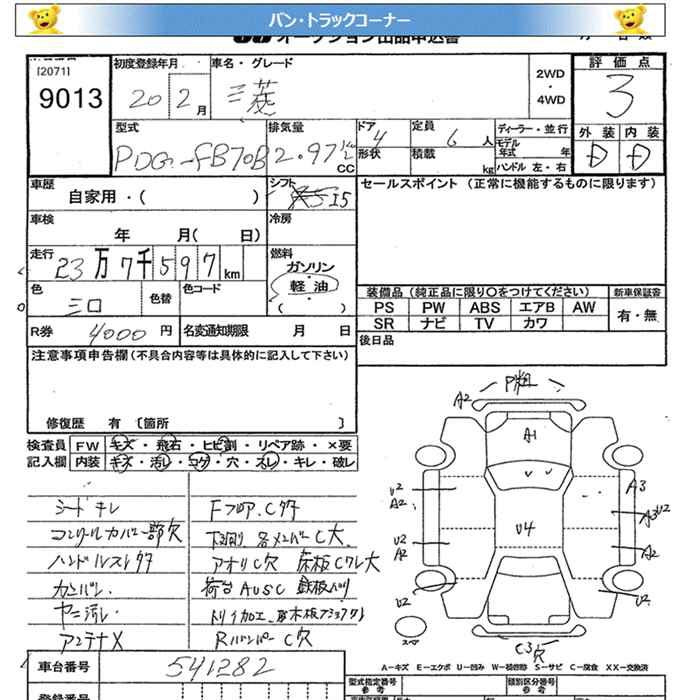 バン・トラックコーナー
オークション出品申込書
[2071]
9013
初度登録年月
20年 2月
車名・グレード
三菱
2WD
・
4WD
評価点
3
外装 内装
D D
型式
PDG-FB70B
排気量
2.97 CC
ドア
4
形状
定員
6人
積載
kg
ディーラー・並行
モデル年式 年
ハンドル 左・右
車歴
自家用・( )
シフト
I5
セールスポイント (正常に機能するものに限ります)
車検
年 月( 日)
冷房
走行
23万7千597km
燃料
ガソリン
・
軽油
・
( )
色
シロ
色替
色コード
装備品 (純正品に限り○をつけてください)
新車保証書
PS PW ABS エアB AW
SR ナビ TV カワ
有・無
R券 4000円
名変通知期限 月 日
後日品
注意事項申告欄 (不具合内容等は具体的に記入して下さい)
修復歴 有 [箇所 ]
検査員 FW キズ・飛石・ヒビ割・リペア跡・×要
記入欄 内装 キズ・汚レ・コゲ・穴・スレ・キレ・破レ
シートキレ
コンソールカバー一部欠
ハンドルスレタタ
カンバン
ヤニ汚レ
アンテナX
FフロアCタタ
下回り 各メンバーC大
アオリC穴 床板Cワレ大
荷台AUSC 鉄板バリ
Rバンパー C穴
A2
A1
U2
A2
U2
A2
U2
U4
A3
A3U2
A2
U2
スペア
C3穴
A-キズ E-エクボ U-凹み W-補修跡 S-サビ C-腐食 XX-交換済
車台番号 541282
型式指定番号
参考
類別区分番号
参考
登録番号